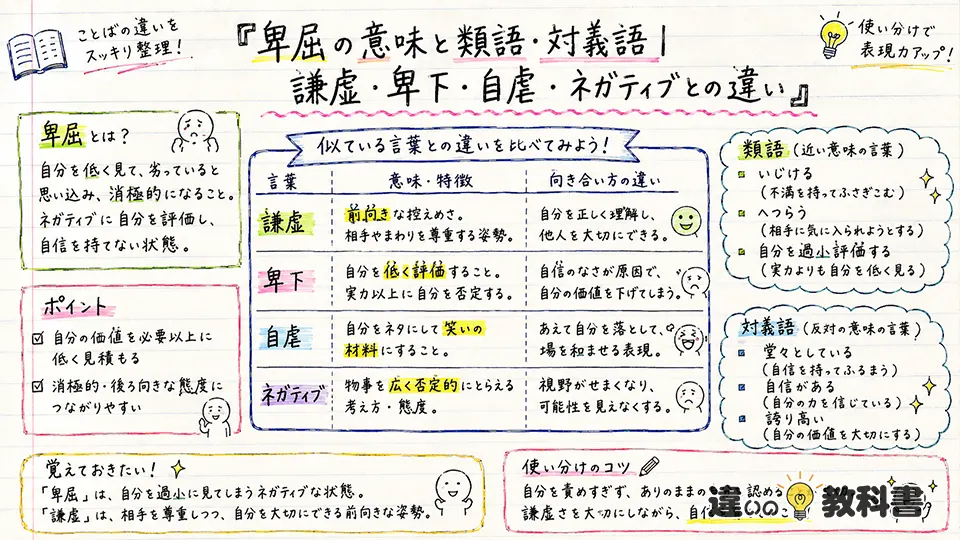 ことばの違いを
スッキリ整理!
『卑屈の意味と類語・対義語|
謙虚・卑下・自虐・ネガティブとの違い』
使い分けで
表現力アップ!
卑屈とは?
自分を低く見て、劣っていると
思い込み、消極的になること。
ネガティブに自分を評価し、
自信を持てない状態。
ポイント
自分の価値を必要以上に
低く見積もる
消極的・後ろ向きな態度に
つながりやすい
似ている言葉との違いを比べてみよう!
言葉 意味・特徴 向き合い方の違い
謙虚
前向きな控えめさ。
相手やまわりを尊重する姿勢。
自分を正しく理解し、
他人を大切にできる。
卑下
自分を低く評価すること。
実力以上に自分を否定する。
自信のなさが原因で、
自分の価値を下げてしまう。
自虐
自分をネタにして笑いの
材料にすること。
あえて自分を落として、
場を和ませる表現。
ネガティブ
物事を広く否定的にとらえる
考え方・態度。
視野がせまくなり、
可能性を見えなくする。
類語(近い意味の言葉)
いじける
(不満を持ってふさぎこむ)
へつらう
(相手に気に入られようとする)
自分を過小評価する
(実力よりも自分を低く見る)
対義語(反対の意味の言葉)
堂々としている
(自信を持ってふるまう)
自信がある
(自分の力を信じている)
誇り高い
(自分の価値を大切にする)
覚えておきたい!
「卑屈」は、自分を過小に見てしまうネガティブな状態。
「謙虚」は、相手を尊重しつつ、自分を大切にできる前向きな姿勢。
使い分けのコツ
自分を責めすぎず、ありのままの 認める
謙虚さを大切にしながら、自信
違いの教科書